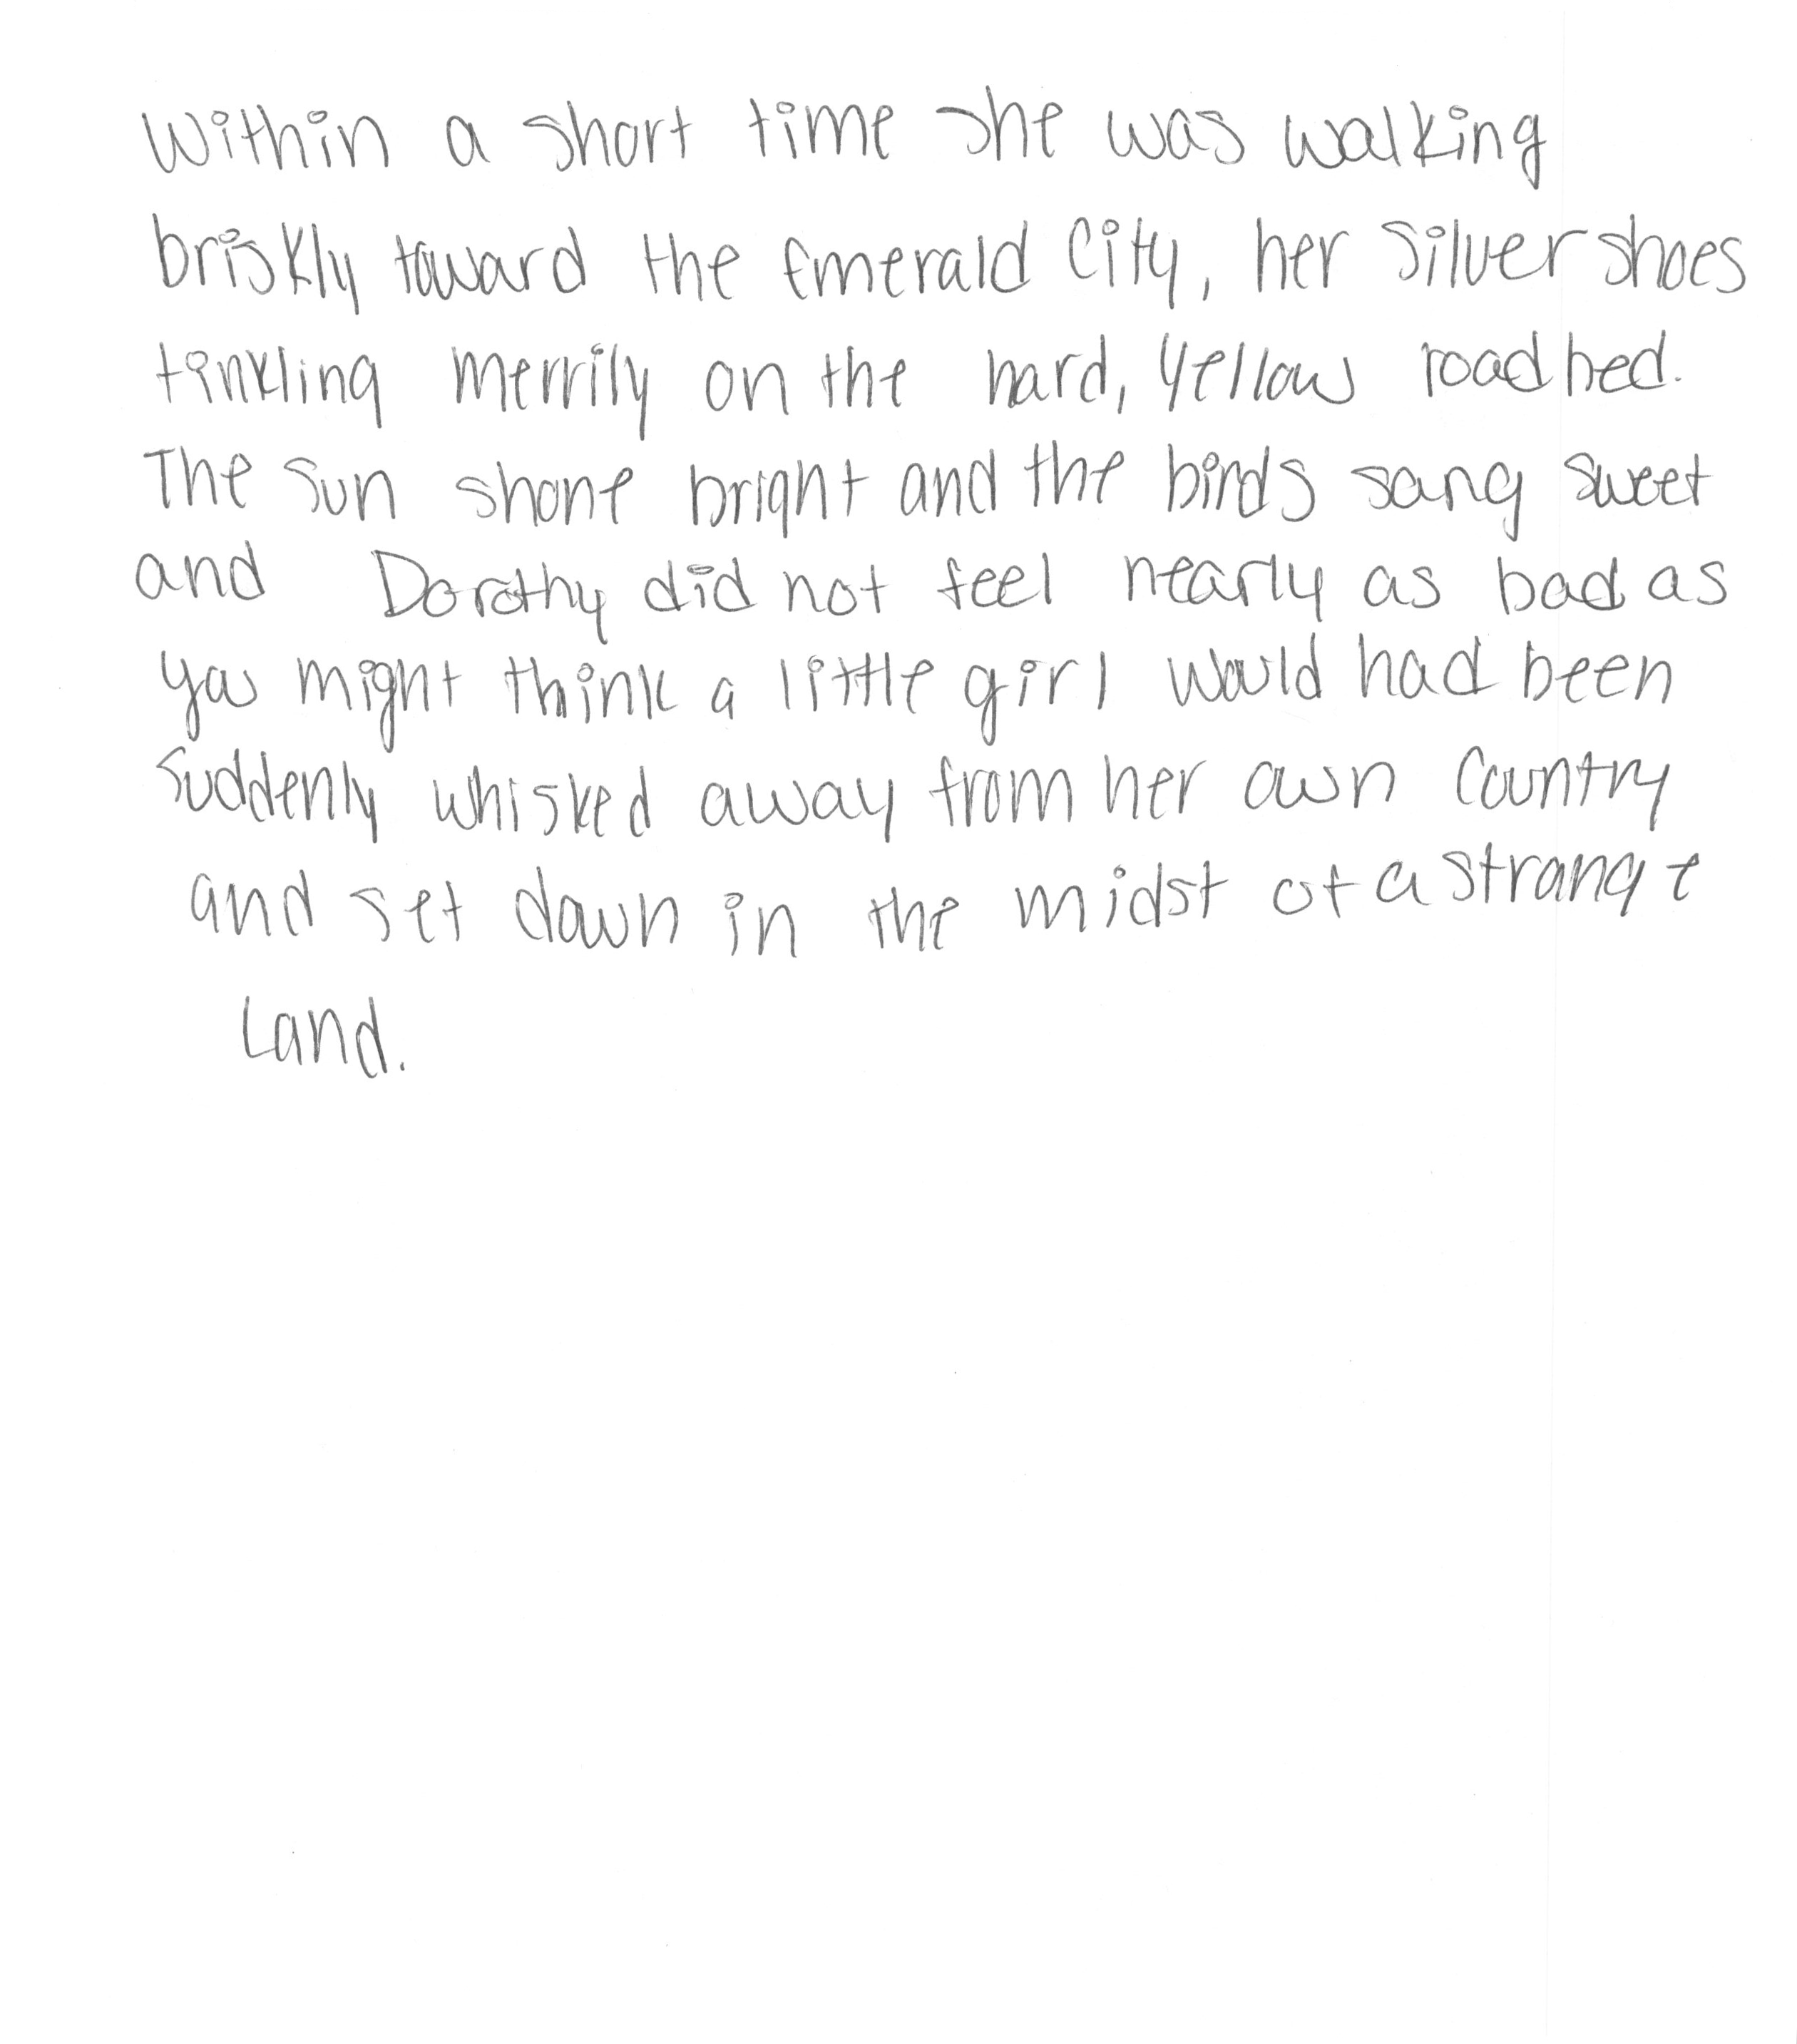 Within a short time she was walking
briskly toward the Emerald City, her silver shoes
tinkling merrily on the hard, yellow roadbed.
The sun shone bright and the birds sang sweet
and Dorothy did not feel nearly as bad as
you might think a little girl would had been
suddenly whisked away from her own country
and set down in the midst of a strange
land.